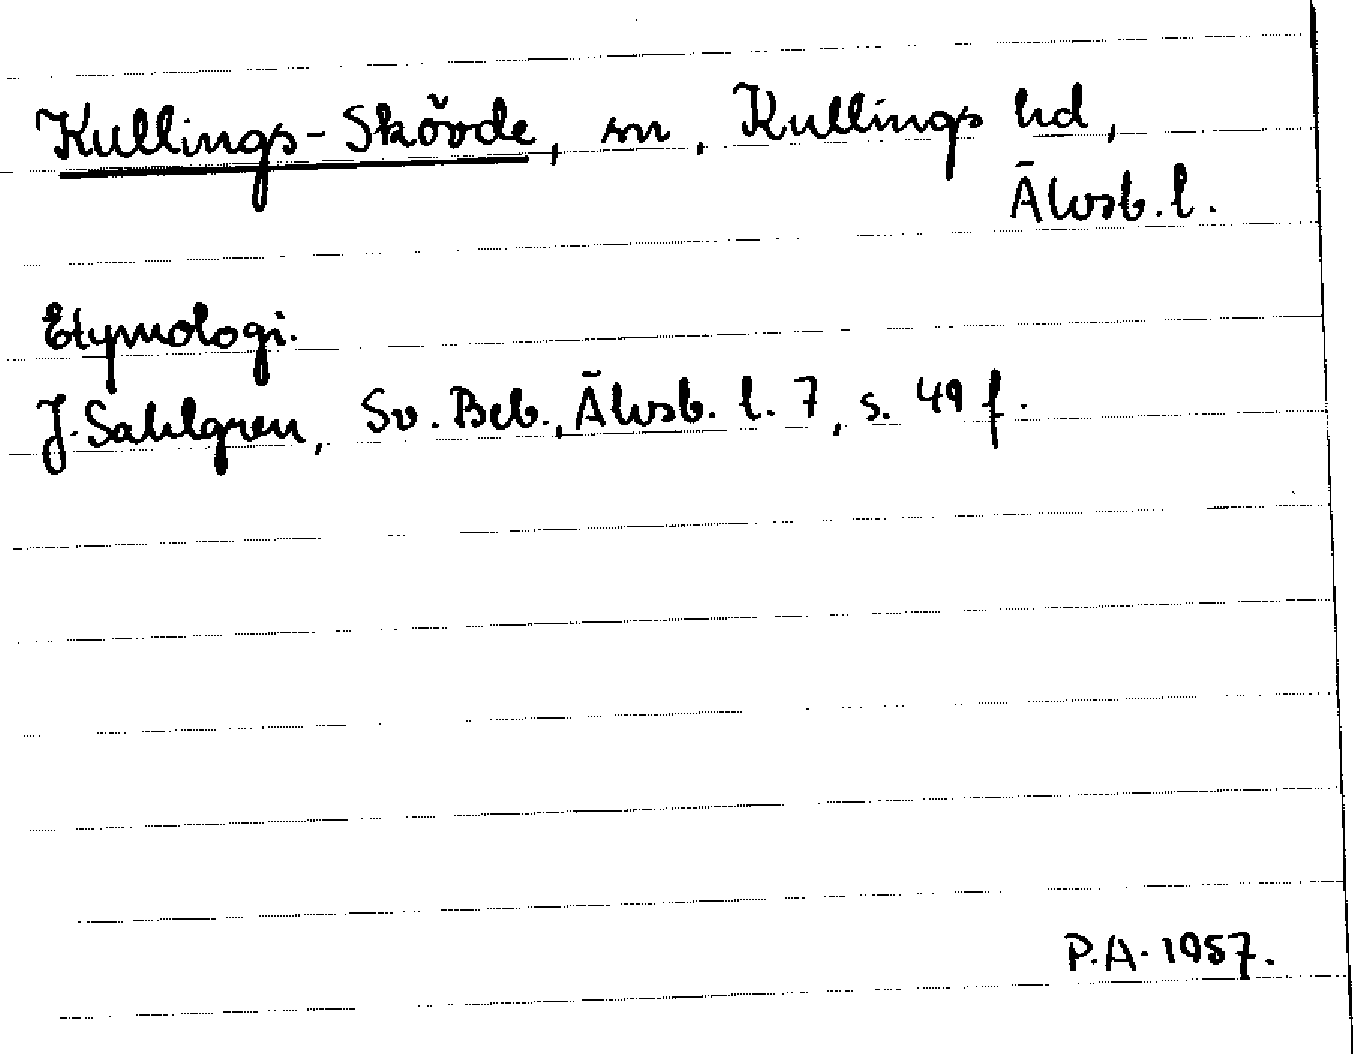 Kullings-Skövde, sn, Kullings hd,
Älvsb. l.
Etymologi.
J. Sahlgren, Sv. Beb., Älvsb. l. 7, s. 49 f.
P.A. 1957.